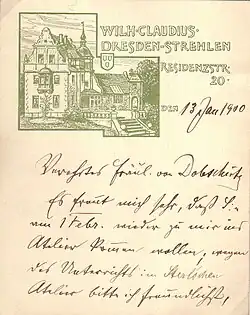 WILH·CLAUDIUS·
DRESDEN-STREHLEN
RESIDENZSTR
20·
DEN 13 Jan 1900
Verehrtes Fräul. von Dobschütz
Es freut mich sehr, daß Sie
am 1 Febr. wieder zu mir ins
Atelier kommen wollen, wegen
des Unterrichts im
Atelier bitte ich freundlichst,